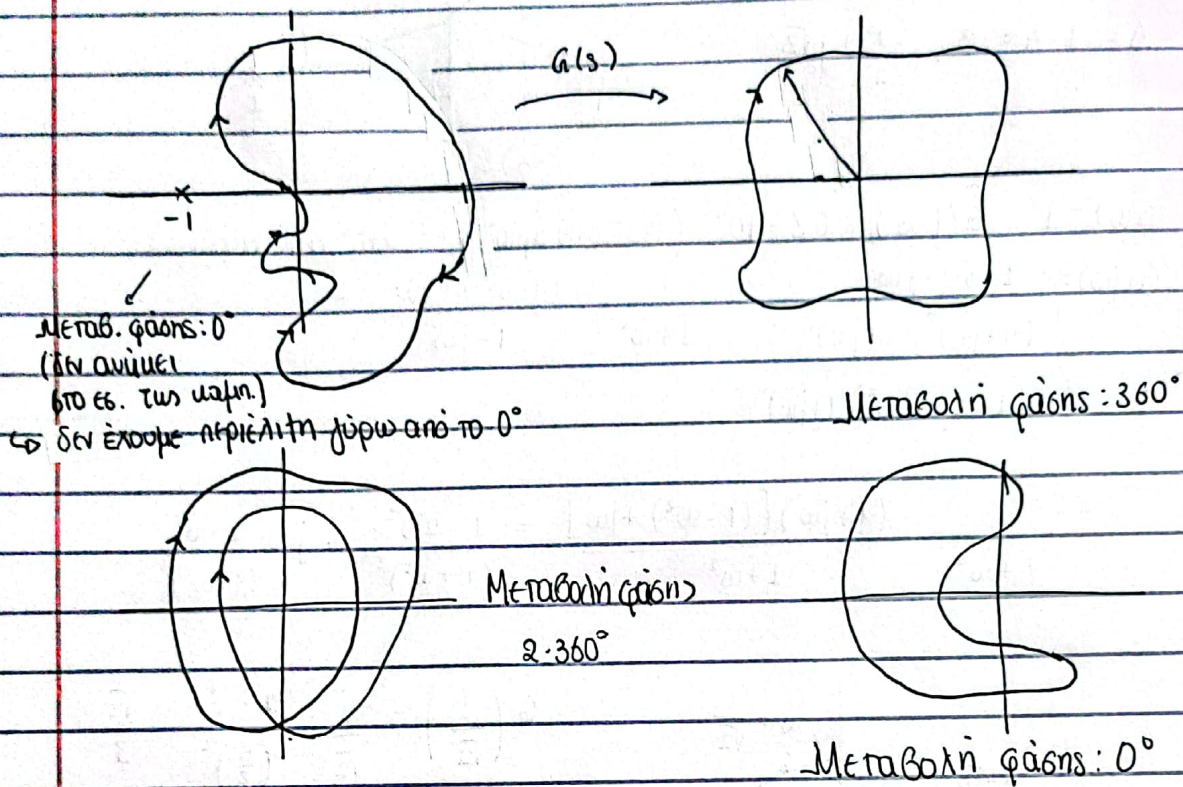 G(s)
-1
Μεταβ. φάσης: 0°
(δεν ανήκει
στο εσ. της καμπ.)
↳ δεν έχουμε περιέλιξη γύρω από το 0°
Μεταβολή φάσης: 360°
Μεταβολή φάσης
2·360°
Μεταβολή φάσης: 0°